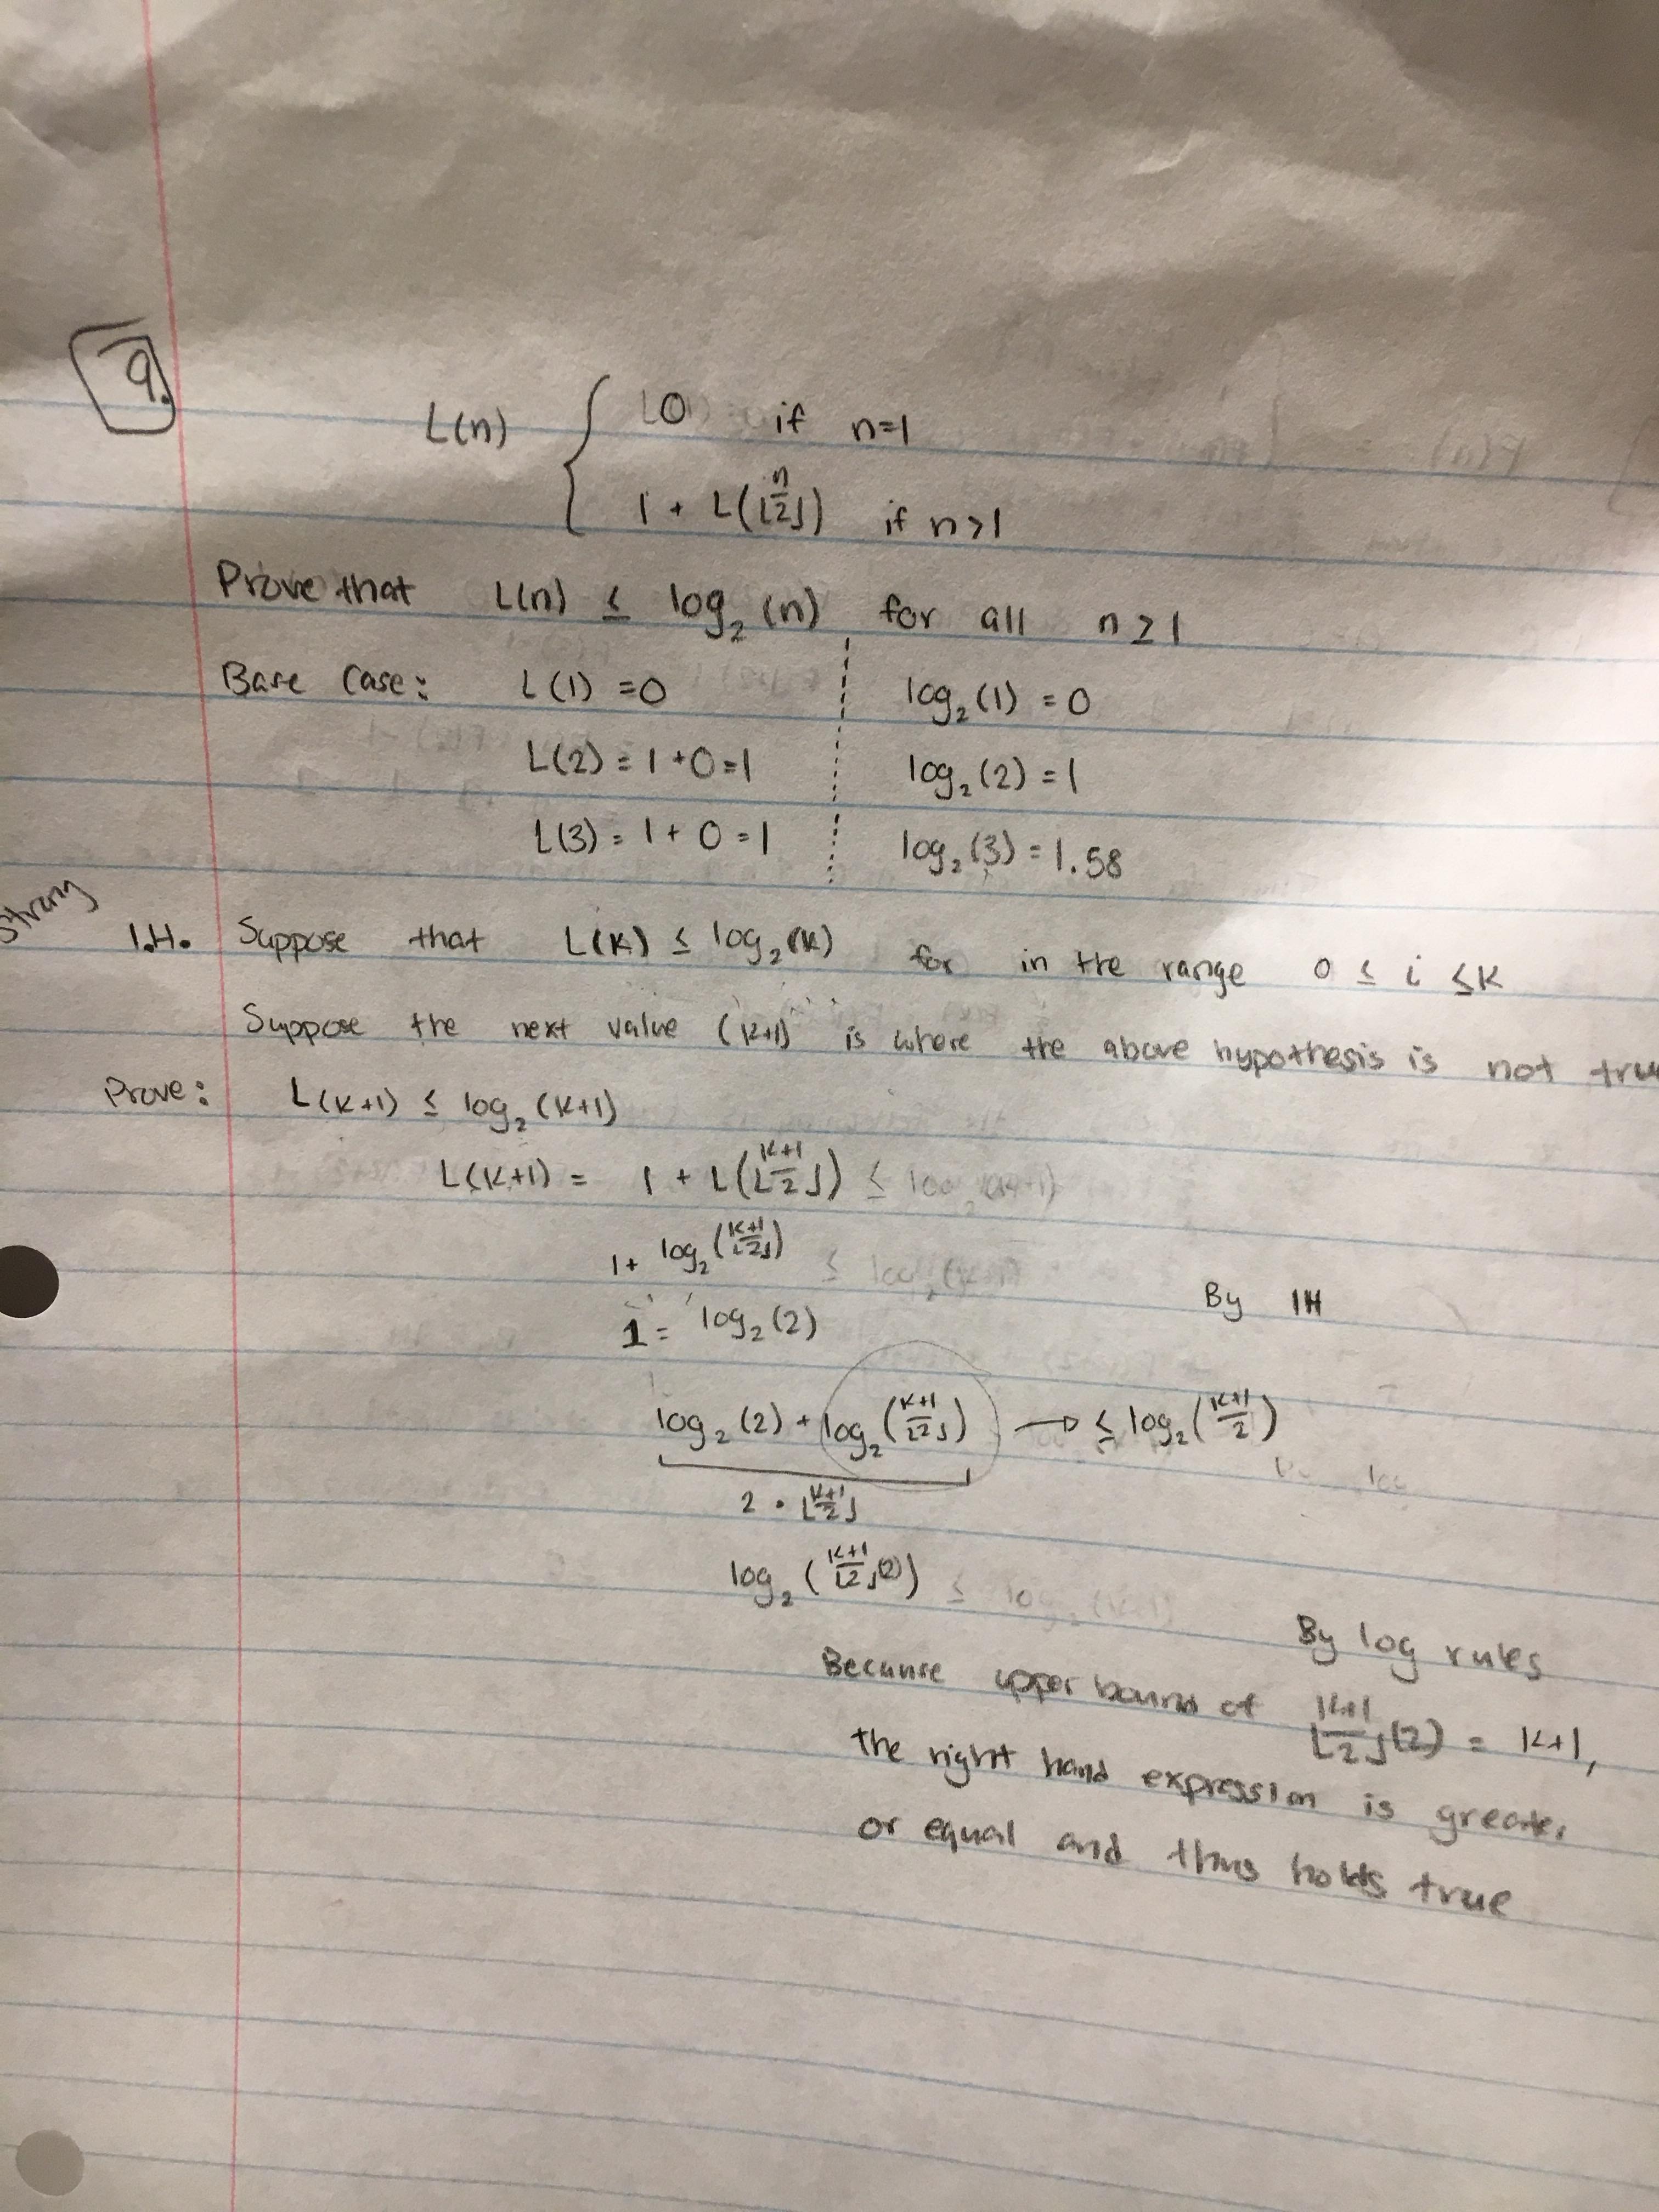 9.
L(n) { 0 if n=1
1 + L(⌊n/2⌋) if n>1
Prove that L(n) ≤ log₂(n) for all n≥1
Base Case: L(1) = 0 log₂(1) = 0
L(2) = 1+0=1 log₂(2) = 1
L(3) = 1+0=1 log₂(3) = 1.58
Strong
I.H. Suppose that L(K) ≤ log₂(K) for in the range 0 ≤ i ≤ K
Suppose the next value (K+1) is where the above hypothesis is not
Prove: L(K+1) ≤ log₂(K+1)
L(K+1) = 1 + L(⌊K+1/2⌋) ≤ log₂(K+1)
1+ log₂(⌊K+1/2⌋) ≤ log₂(K+1) By IH
1 = log₂(2)
log₂(2) + log₂(⌊K+1/2⌋) → ≤ log₂(K+1/2)
2 · ⌊K+1/2⌋
log₂(⌊K+1/2⌋(2)) ≤ log₂(K+1)
By log rules
Because upper bound of ⌊K+1/2⌋(2) = K+1,
the right hand expression is greater
or equal and thus holds true